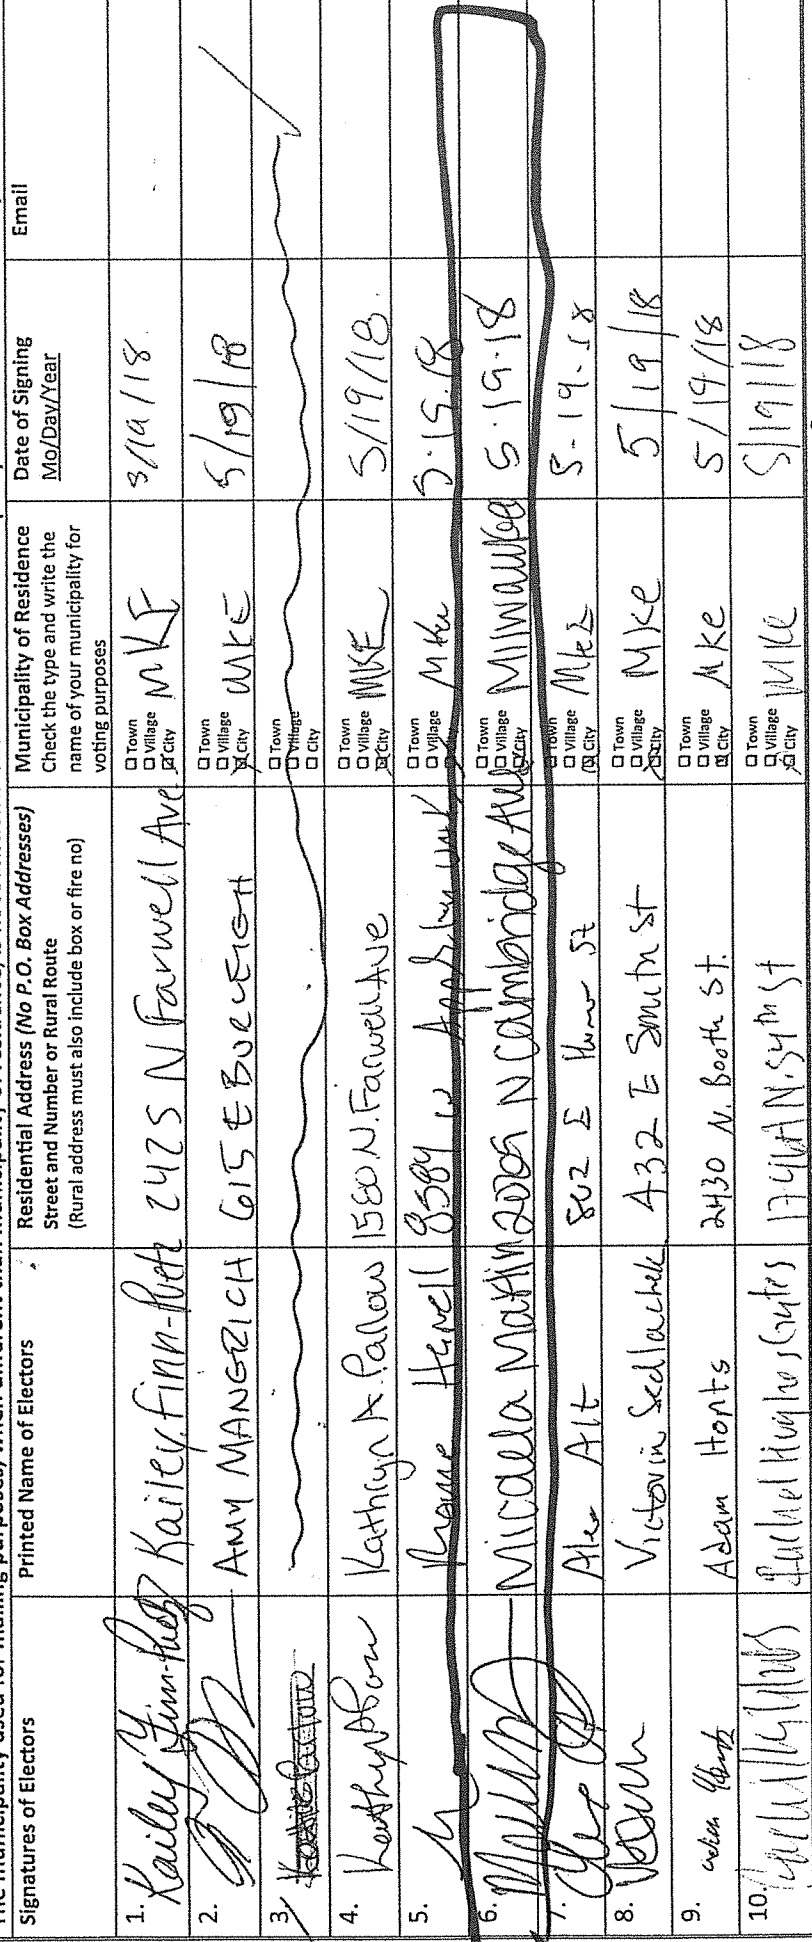 Signatures of Electors
Printed Name of Electors
Residential Address (No P.O. Box Addresses)
Street and Number or Rural Route
(Rural address must also include box or fire no)
Municipality of Residence
Check the type and write the
name of your municipality for
voting purposes
Date of Signing
Mo/Day/Year
Email
1. Kailey Finn-Puetz Kailey Finn-Puetz 2425 N Farwell Ave Town Village City MKE 5/19/18
2. AMY MANGRICH 615 E BURLEIGH Town Village City MKE 5/19/18
3. Town Village City
4. Kathryn A. Parlow 1580 N. Farwell Ave Town Village City MKE 5/19/18.
5. W Town Village City Mke 5.19.18
6. Micaela Martin 2009 N Cambridge Ave Town Village City Milwaukee 5.19.18
7. Alex Alt 802 E St Town Village City 5-19-18
8. Victoria Sedlachek 432 E Smith St Town Village City Mke 5/19/18
9. Adam Honts 2430 N. Booth St. Town Village City Mke 5/19/18
10. Rachel Hughes 1746A N. 54th St Town Village City Mke 5/19/18